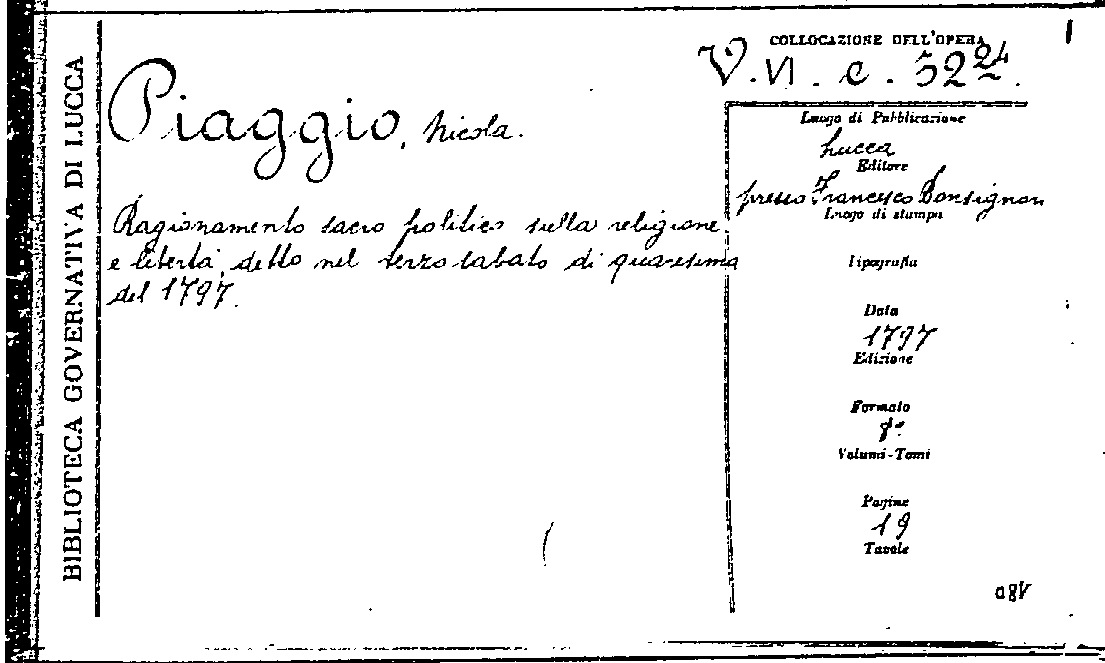 BIBLIOTECA GOVERNATIVA DI LUCCA
COLLOCAZIONE DELL'OPERA
V. VI. c. 52 24.
Piaggio, Nicola.
Ragionamento sacro politico sulla religione
e libertà, detto nel terzo sabato di quaresima
del 1797.
Luogo di Pubblicazione
Lucca
Editore
presso Francesco Bonsignori
Luogo di stampa
Tipografia
Data
1797
Edizione
Formato
8°
Volumi-Tomi
Pagine
19
Tavole